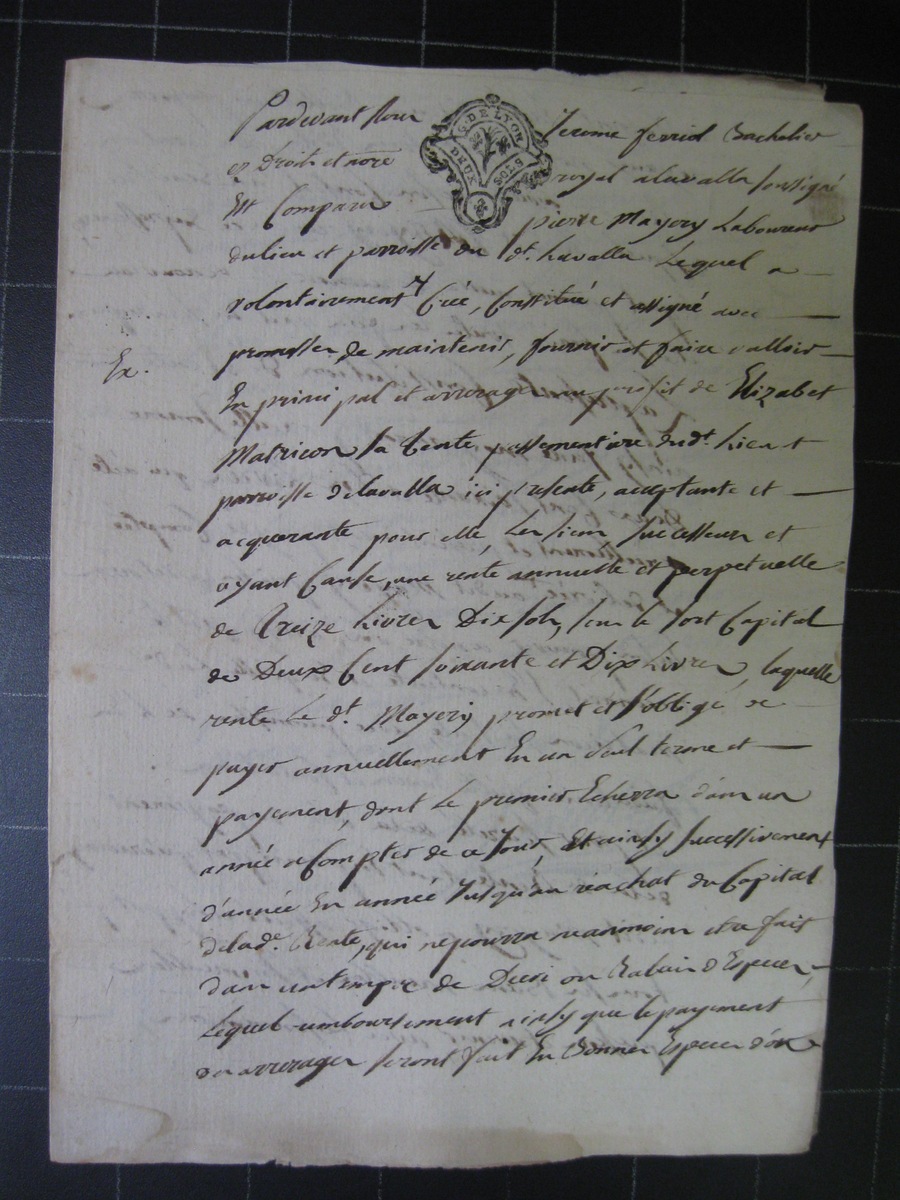 Pardevant Nous Jerome ferriol Bachelier
G. DE LYON
DEUX SOLS
es Droits et nore royal a lavalla soussigné
Est Comparu pierre Mayery Laboureur
du lieu et parroisse du dt. Lavalla Lequel a
volontairement Créé, Constitué et assigné avec
Ex.
promesses de maintenir, fournir et faire valloir
En principal et arrerages au profit de Elizabet
Matricon la Cente passementiere dudt. Lieu et
parroisse de lavalla ici presente, acceptante et
acquerante pour elle, Les siens successeurs et
ayant Cause, une rente annuelle et perpetuelle
de Treize Livres Dix sols, sous le sort Capital
de Deux Cent soixante et Dix Livres, laquelle
rente Le dt. Mayery promet et s'oblige de
payer annuellement En un seul terme et
payement, dont Le premier Echerra dans un
année a Compter de ce Jour, Et ainsy successivement
d'année En année Jusqu'au réachat du Capital
de lade. Rente, qui ne pourra neanmoins etre fait
dans un temps de Decri ou Rabais d'Especes,
Lequel remboursement ainsy que le payement
des arrerages seront fait En Bonnes Especes d'or